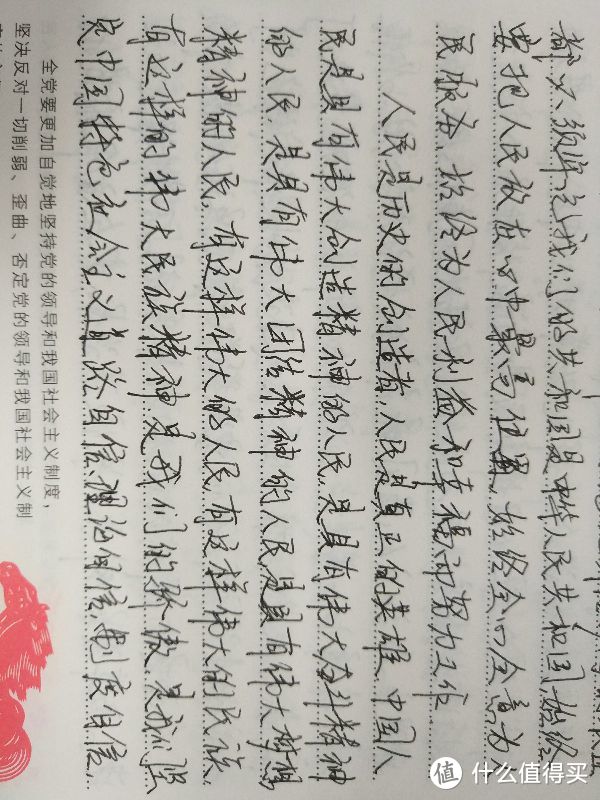 都必须牢记我们的共和国是中华人民共和国,始终
要把人民放在心中最高位置,始终全心全意为人
民服务,始终为人民利益和幸福而努力工作
人民是历史的创造者,人民是真正的英雄。中国人
民是具有伟大创造精神的人民,是具有伟大奋斗精神
的人民,是具有伟大团结精神的人民,是具有伟大梦想
精神的人民。有这样伟大的人民,有这样伟大的民族,
有这样的伟大民族精神是我们的骄傲,是我们坚
定中国特色社会主义道路自信、理论自信、制度自信、
全党要更加自觉地坚持党的领导和我国社会主义制度,
坚决反对一切削弱、歪曲、否定党的领导和我国社会主义制
值 什么值得买